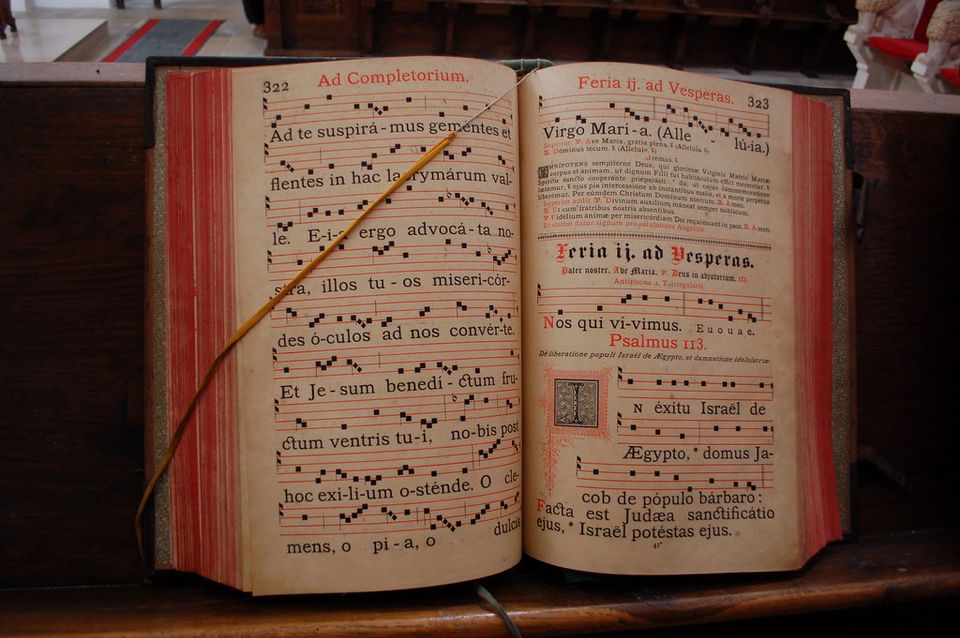 322 Ad Completorium.
Ad te suspirá-mus gementes et
flentes in hac la rymárum val-
le. E-i-a ergo advocá-ta no-
stra, illos tu-os miseri-cór-
des ó-culos ad nos convér-te.
Et Je-sum benedí-ctum fru-
ctum ventris tu-i, no-bis post
hoc exí-li-um o-sténde. O cle-
mens, o pi-a, o dulcis
Feria ij. ad Vesperas. 323
Virgo Marí-a. (Alle lú-ia.)
Superior. ℣. Ave María, grátia plena. (Allelúia.)
℟. Dóminus tecum. (Allelúia.)
Orémus.
OMNIPOTENS sempiterne Deus, qui gloriósæ Vírginis Matris Maríæ
corpus et ánimam, ut dignum Fílii tui habitáculum éffici mererétur,
Spíritu sancto cooperánte præparásti: da, ut cujus commemoratióne
lætámur, ejus pia intercessióne ab instántibus malis, et a morte perpétua
liberémur. Per eúmdem Christum Dóminum nostrum. ℟. Amen.
Superior addit ℣. Divínum auxílium máneat semper nobíscum.
℟. Et cum frátribus nostris abséntibus.
℣. Fidélium ánimæ per misericórdiam Dei requiéscant in pace. ℟. Amen.
Et statim datur signum pro salutatione Angelica.
Feria ij. ad Vesperas.
Pater noster. Ave Maria. ℣. Deus in adjutorium. etc.
Antiphona 1. T. irregularis.
Nos qui ví-vimus. E u o u a e.
Psalmus 113.
De liberatione populi Israël de Ægypto, et damnatione idololatriæ.
IN éxitu Israël de
Ægypto, * domus Ja-
cob de pópulo bárbaro:
Facta est Judæa sanctificátio
ejus, * Israël potéstas ejus.